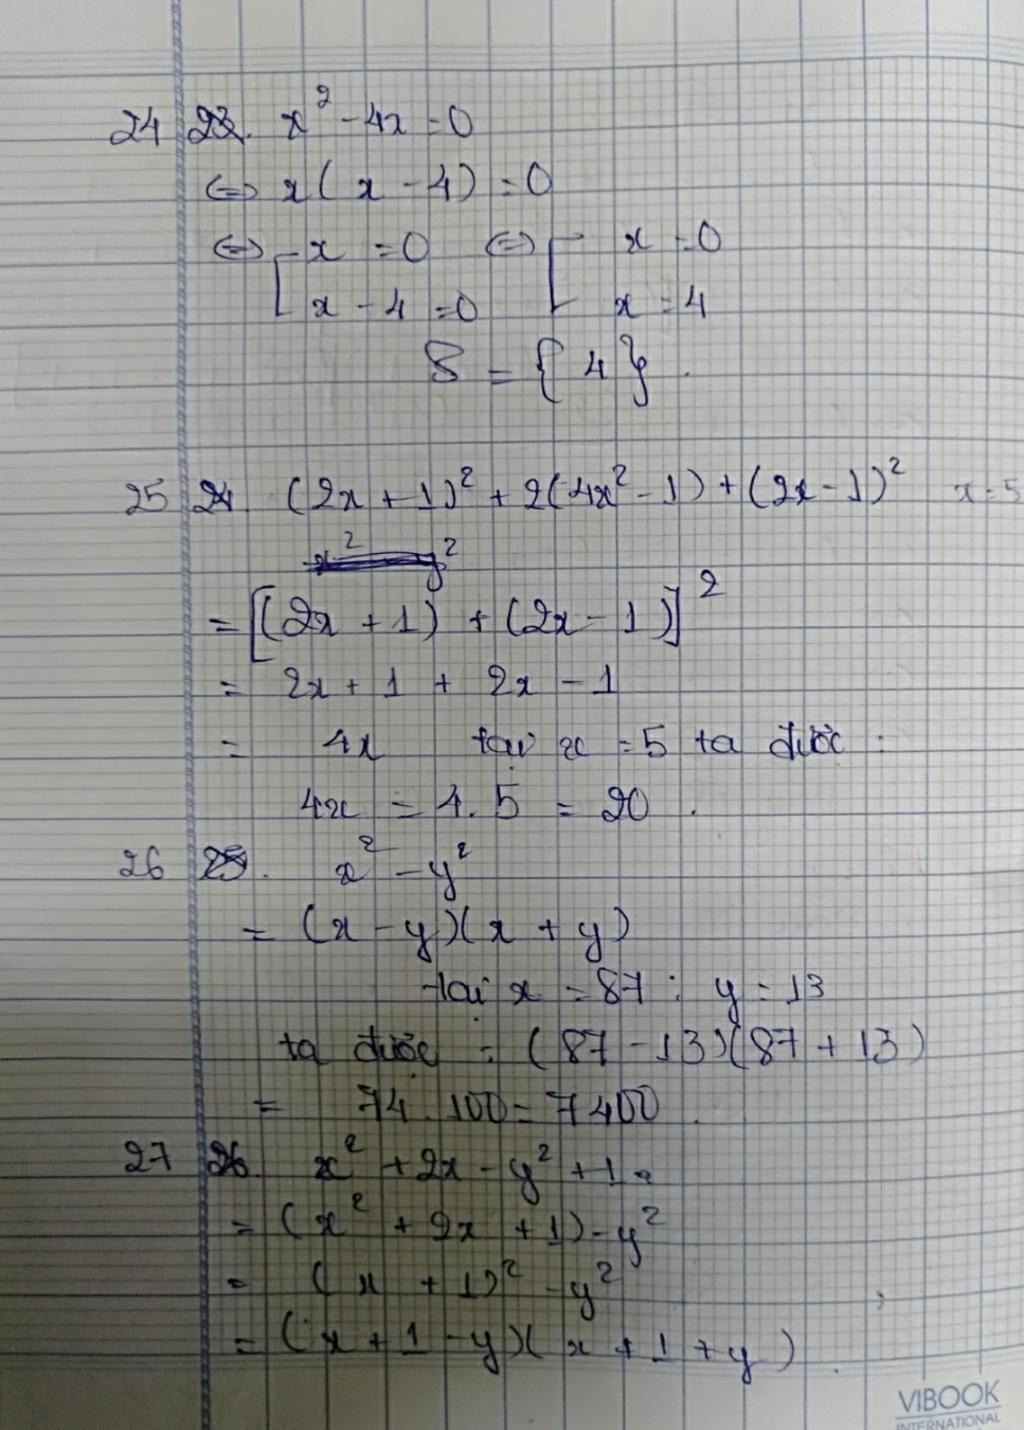 24 23. x² - 4x = 0
⇔ x(x - 4) = 0
⇔ [ x = 0 ⇔ [ x = 0
x - 4 = 0 x = 4
S = { 4 } .
25 24. (2x + 1)² + 2(4x² - 1) + (2x - 1)² x = 5
x² y²
= [(2x + 1) + (2x - 1)]²
= 2x + 1 + 2x - 1
= 4x tại x = 5 ta được :
4x = 4.5 = 20 .
26 25. x² - y²
= (x - y)(x + y)
tại x = 87 ; y = 13
ta được : (87 - 13)(87 + 13)
= 74.100 = 7400 .
27 26. x² + 2x - y² + 1 .
= (x² + 2x + 1) - y²
= (x + 1)² - y²
= (x + 1 - y)(x + 1 + y) .
VIBOOK
INTERNATIONAL